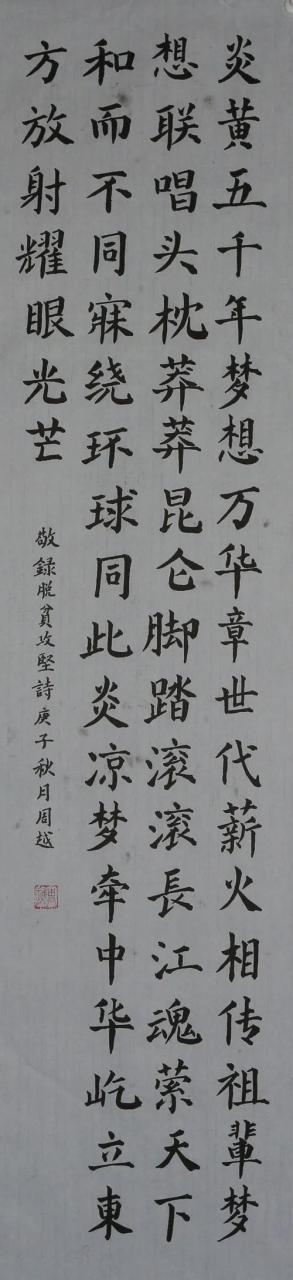 炎黄五千年梦想万华章世代薪火相传祖輩梦
想联唱头枕莽莽昆仑脚踏滚滚長江魂萦天下
和而不同寐绕环球同此炎凉梦牵中华屹立東
方放射耀眼光芒
敬録脱貧攻堅詩庚子秋月周越